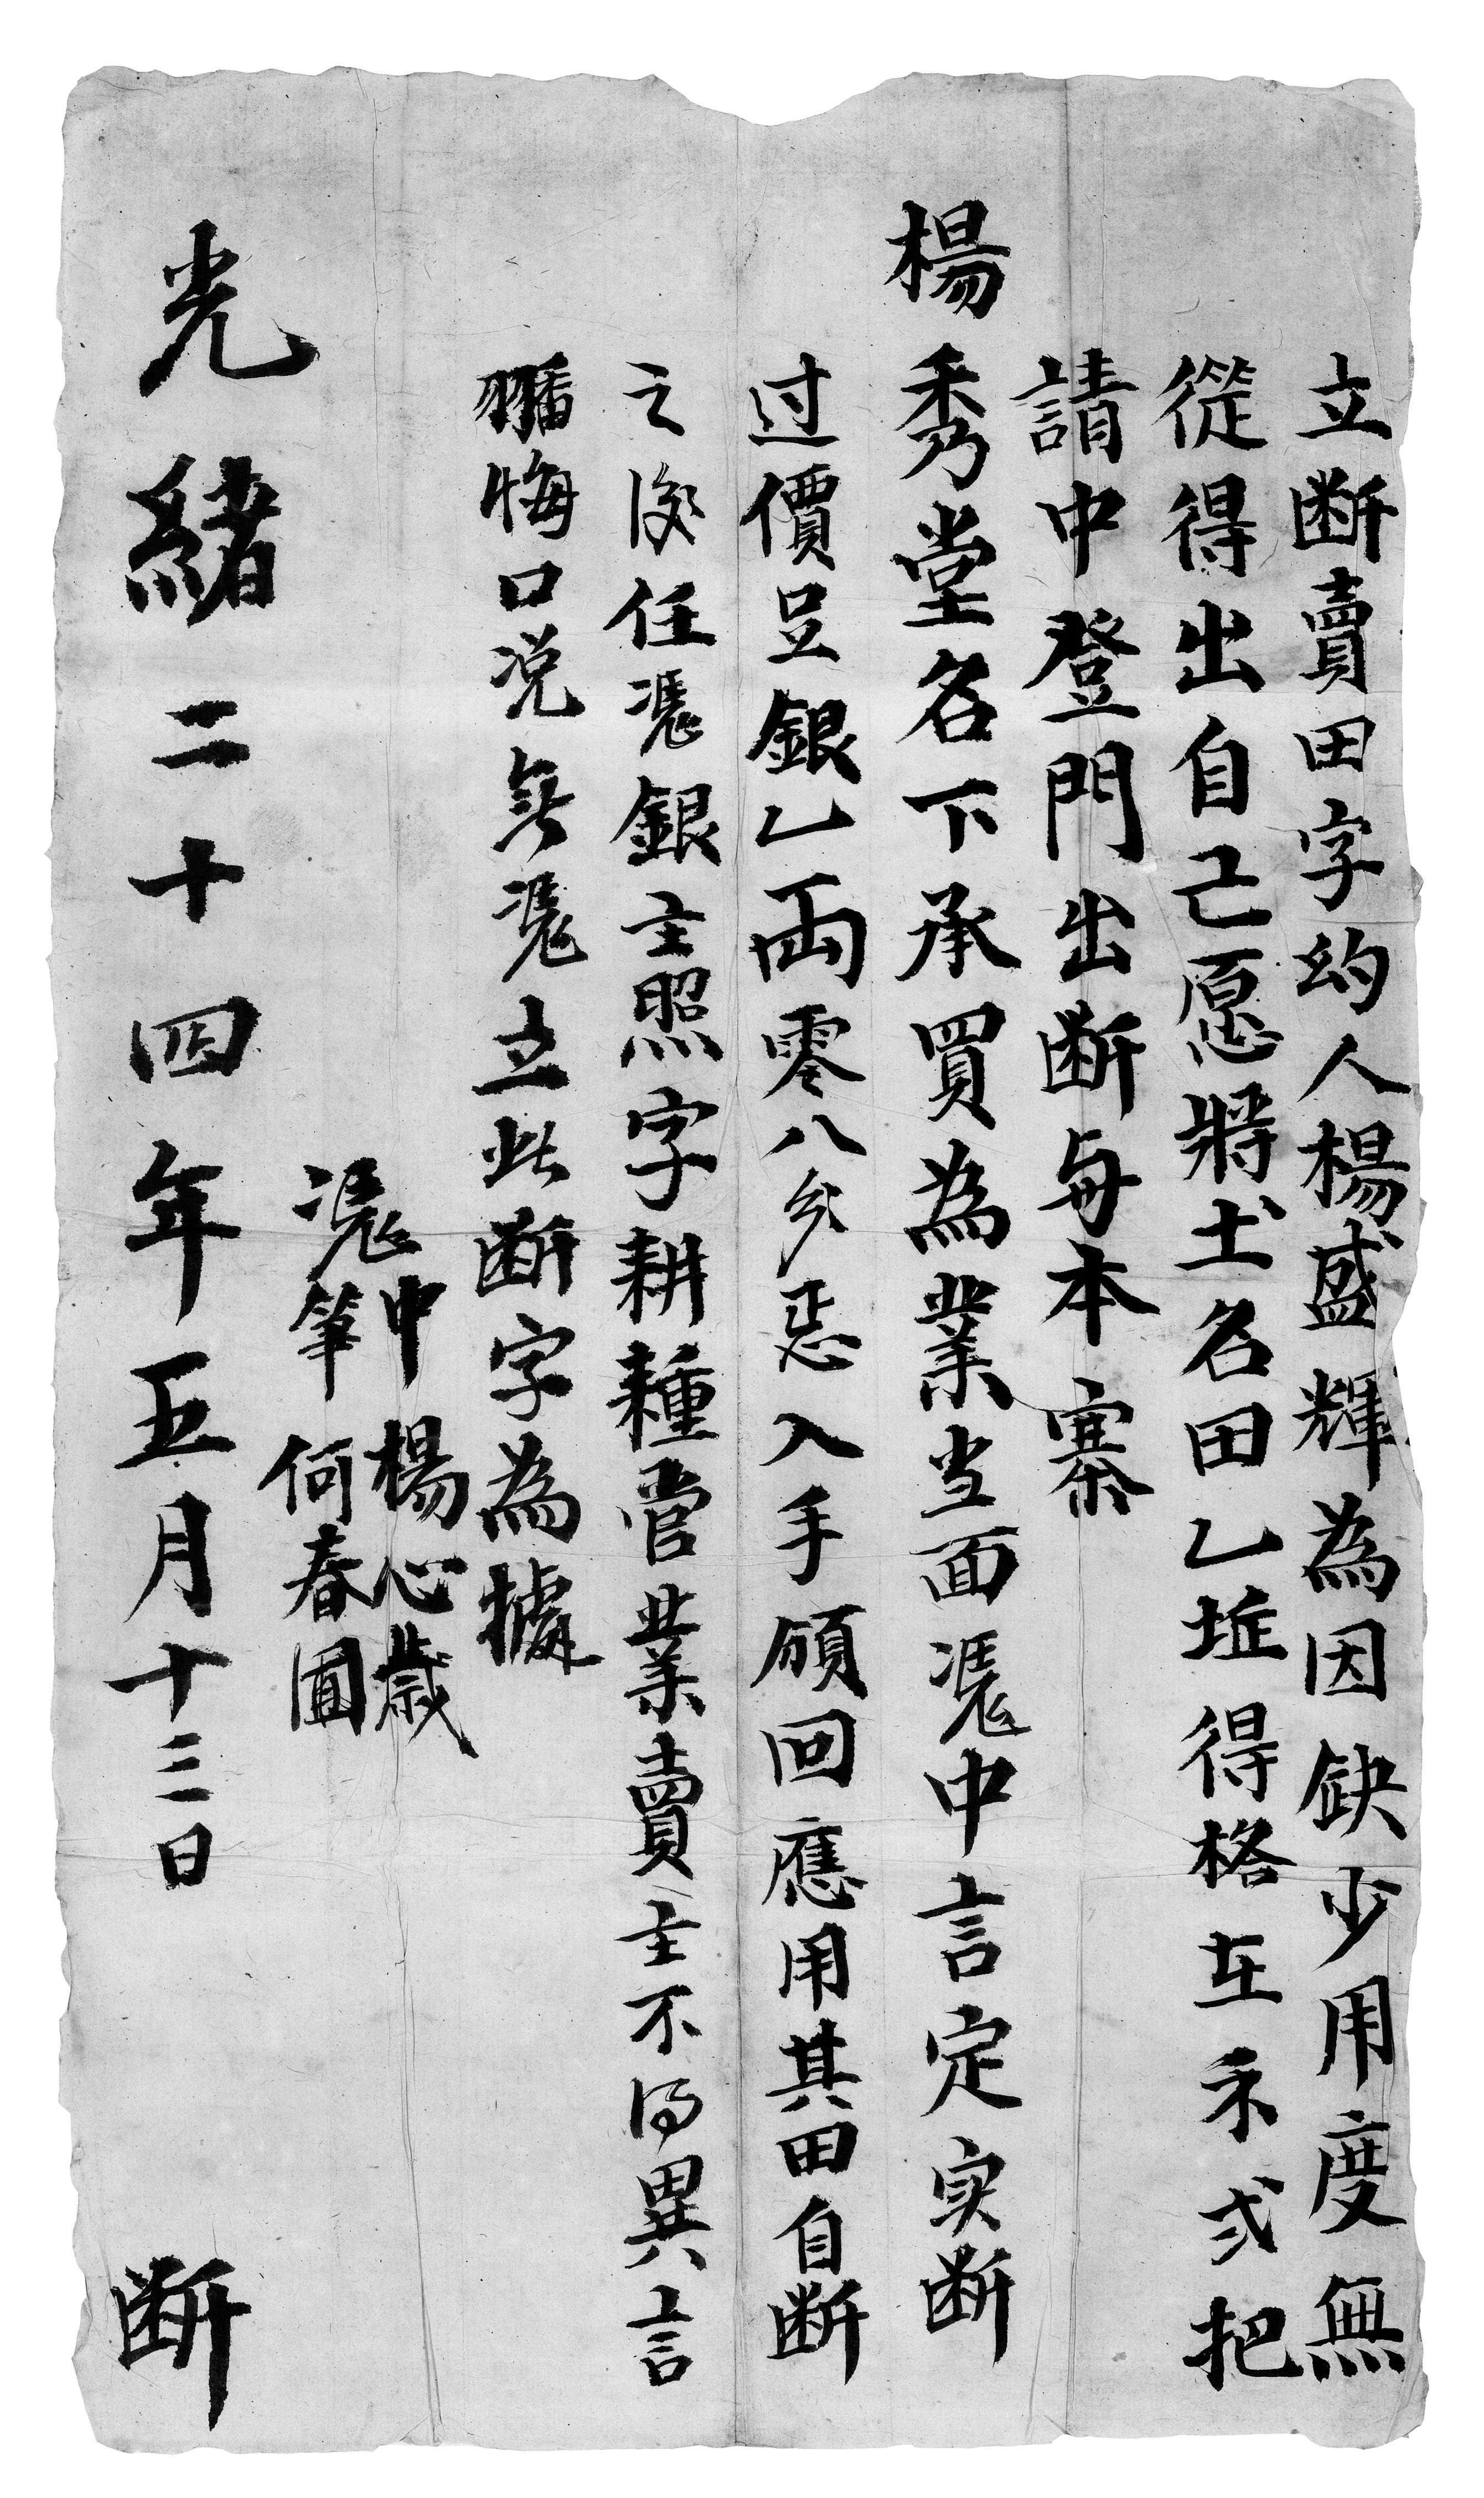 立断賣田字約人楊盛輝為因缺少用度無
從得出自己愿將土名田乙坵得格在禾弍把
請中登門出断与本寨
楊秀堂名下承買為業当面凴中言定实断
过價足銀乙両零八分恶入手領回應用其田自断
之後任凴銀主照字耕種管業賣主不得異言
翻悔口说無凴立此断字為據
凴中楊心歳
筆何春圓
光緒二十四年五月十三日 断